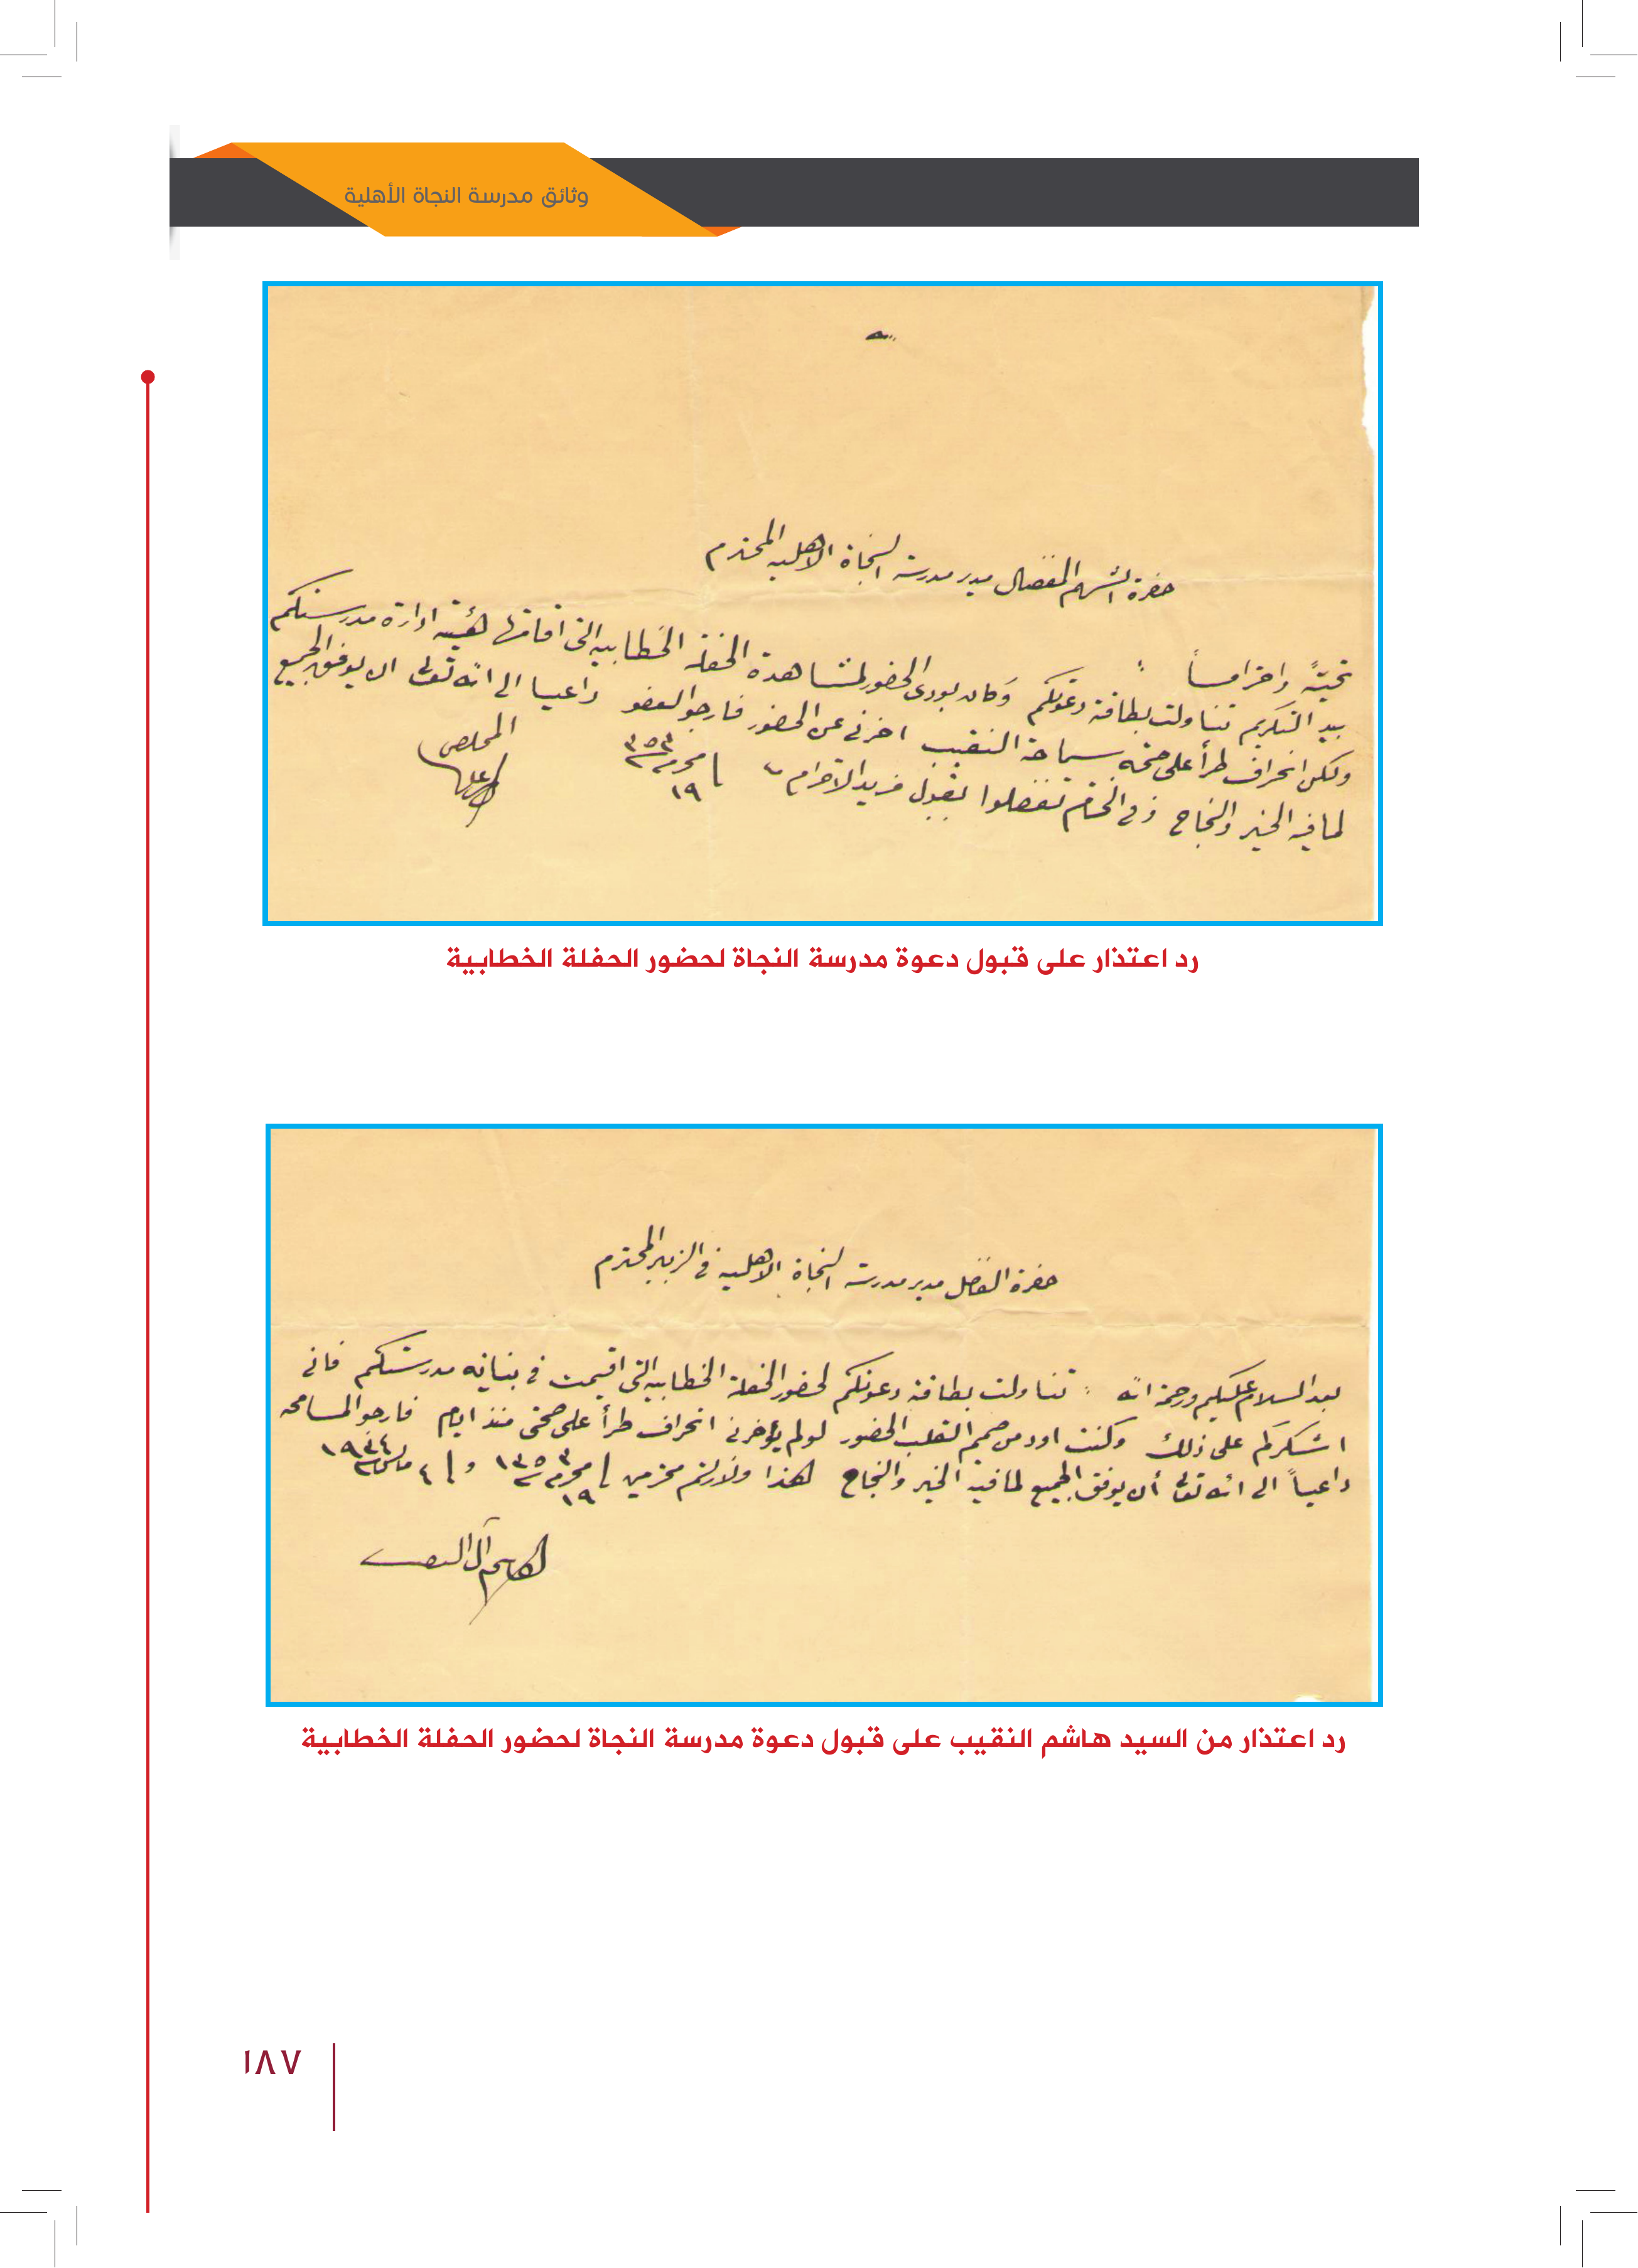 وثائق مدرسة النجاة الأهلية
حضرة الشهم المفضال مدير مدرسة النجاة الاهليه المحترم
تحيةً واحتراماً :
بيد التكريم تناولت بطاقة دعوتكم وكان بودى الحضور لمشاهدة الحفلة الخطابيه التى اقامتها هيئة ادارة مدرستكم
ولكن انحراف طرأ على صحة سماحة النقيب اخرنى عن الحضور فارجو العفو داعيا الى الله تعالى ان يوفق الجميع
لما فيه الخير والنجاح وفى الختام تفضلوا بقبول مزيد الاحترام
١٩ محرم ٣٥٣
المخلص
رد اعتذار على قبول دعوة مدرسة النجاة لحضور الحفلة الخطابية
حضرة الفاضل مدير مدرسة النجاة الاهلية فى الزبير المحترم
بعد السلام عليكم ورحمة الله : تناولت بطاقة دعوتكم لحضور الحفلة الخطابيه التى اقيمت فى بناية مدرستكم فانى
اشكركم على ذلك وكنت اود من صميم القلب الحضور لو لم يؤخرنى انحراف طرأ على صحتى منذ ايام فارجو المسامحه
داعياً الى الله تعالى أن يوفق الجميع لما فيه الخير والنجاح هذا ولازلتم محترمين ١٩ محرم ١٣٥٣ و ٤ مارس ١٩٣٤
هاشم آل النقيب
رد اعتذار من السيد هاشم النقيب على قبول دعوة مدرسة النجاة لحضور الحفلة الخطابية
١٨٧